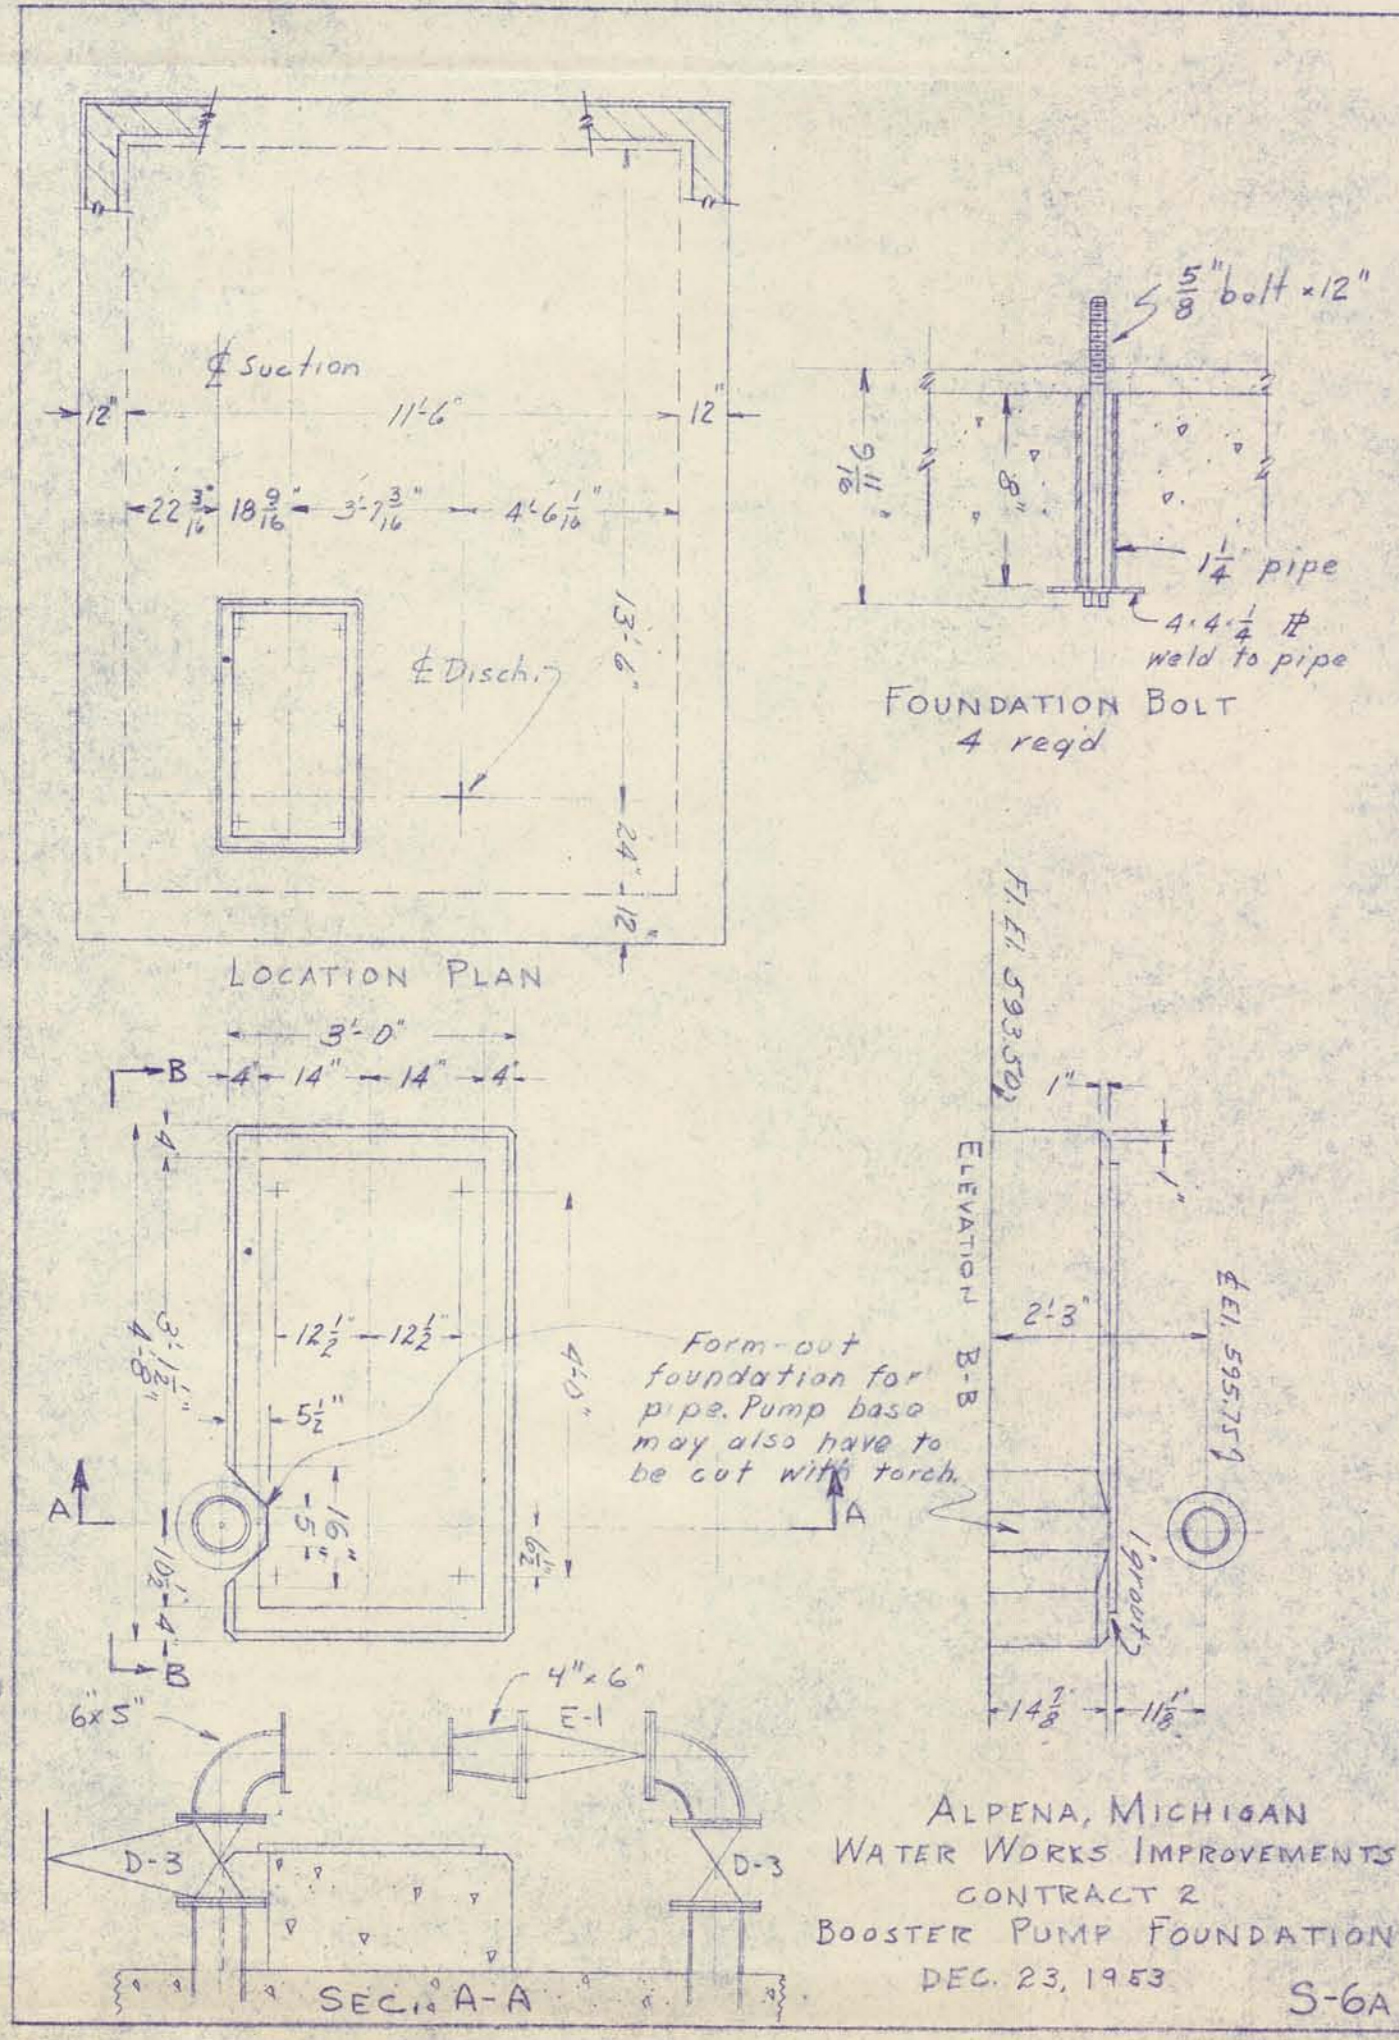 ℄ Suction
12" 11'-6" 12"
22 3/16" 18 9/16" 3'-7 3/16" 4'-6 1/16"
13'-6"
℄ Disch.
24"
12"
LOCATION PLAN
5/8" bolt × 12"
9 11/16"
8"
1 1/4" pipe
4·4·1/4 ℙ
weld to pipe
FOUNDATION BOLT
4 req'd
3'-0"
B 4" 14" 14" 4"
4"
3'-1 1/2"
4'-8"
12 1/2" 12 1/2"
5 1/2"
4'-0"
A A
16"
5"
6 1/2"
10 1/2"
4"
B
Form-out
foundation for
pipe. Pump base
may also have to
be cut with torch.
Fl. El. 593.50
1"
1"
ELEVATION B-B
2'-3"
℄ El. 595.75
1" grout
14 7/8" 11 1/8"
6"x5"
4"x6"
E-1
D-3 D-3
SEC. A-A
ALPENA, MICHIGAN
WATER WORKS IMPROVEMENTS
CONTRACT 2
BOOSTER PUMP FOUNDATION
DEC. 23, 1953
S-6A